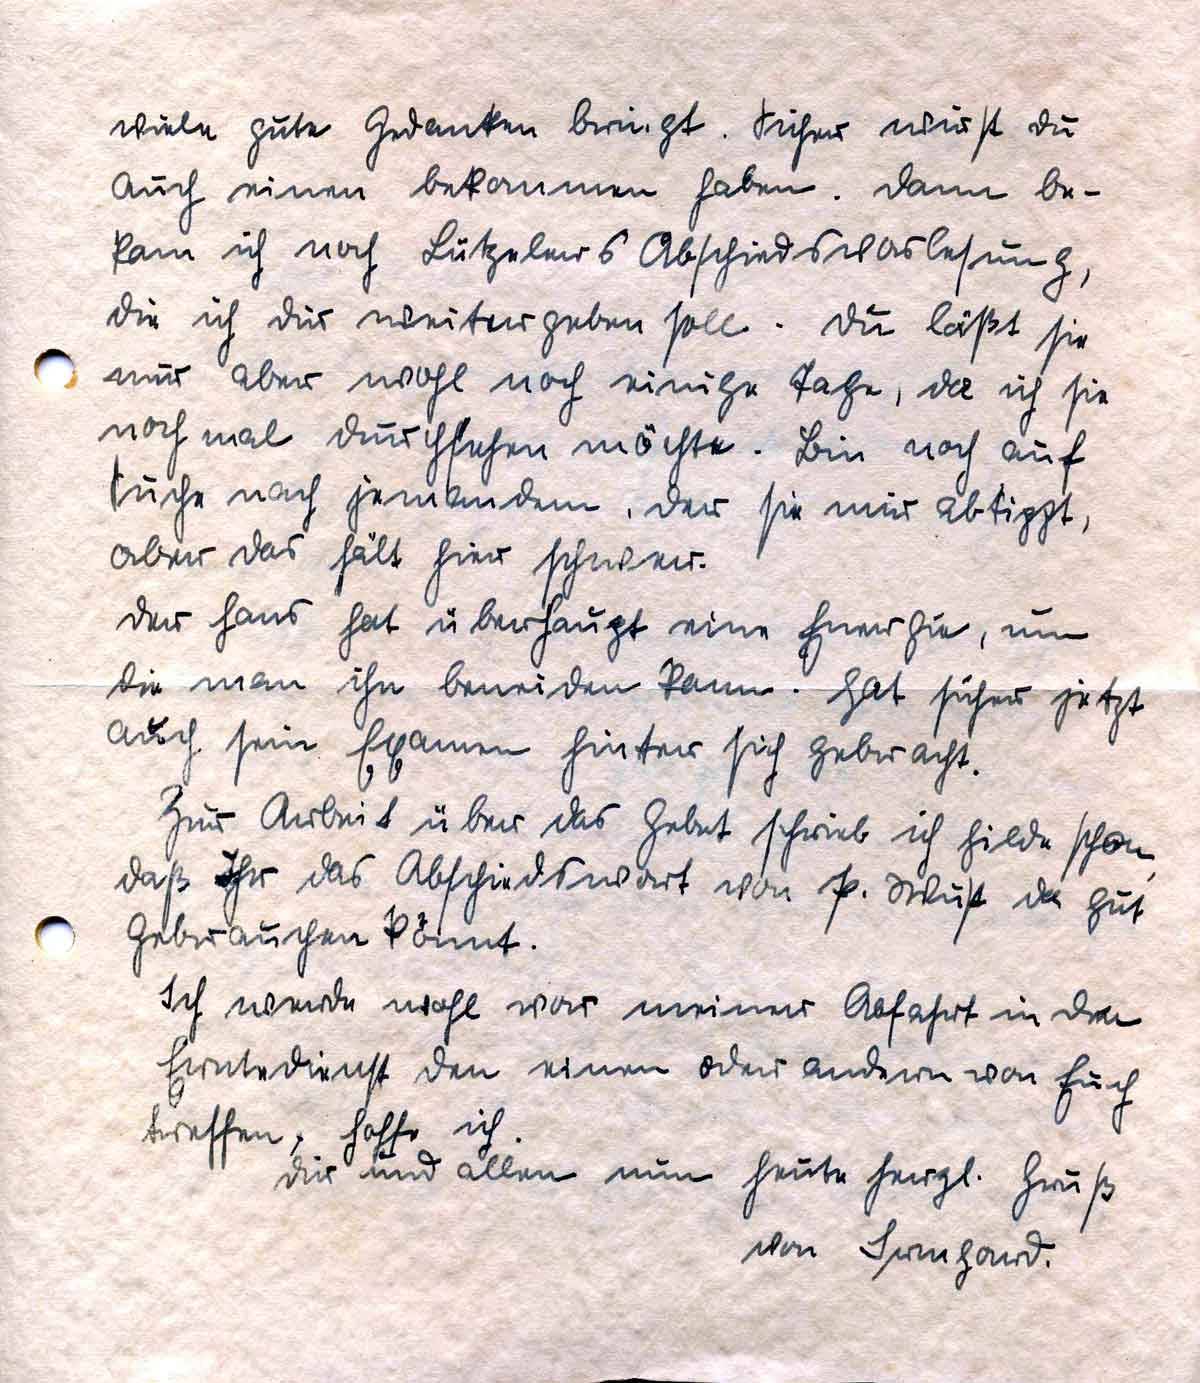 viele gute Gedanken bringt. Sicher wirst du
auch einen bekommen haben. Dann be-
kam ich noch Lützelers Abschiedsvorlesung,
die ich dir weitergeben soll. Du läßt sie
mir aber wohl noch einige Tage, da ich sie
noch mal durchsehen möchte. Bin noch auf
Suche nach jemandem, der sie mir abtippt,
aber das hält hier schwer.
Der Hans hat überhaupt eine Energie, um
die man ihn beneiden kann. Hat sicher jetzt
auch sein Examen hinter sich gebracht.
Zur Arbeit über das Gebet schrieb ich Hilde schon,
daß Ihr das Abschiedswort von P. Wust da gut
gebrauchen könnt.
Ich werde wohl vor meiner Abfahrt in den
Erntedienst den einen oder andern von Euch
treffen, hoffe ich.
Dir und allen nun heute herzl. Gruß
von Irmgard.